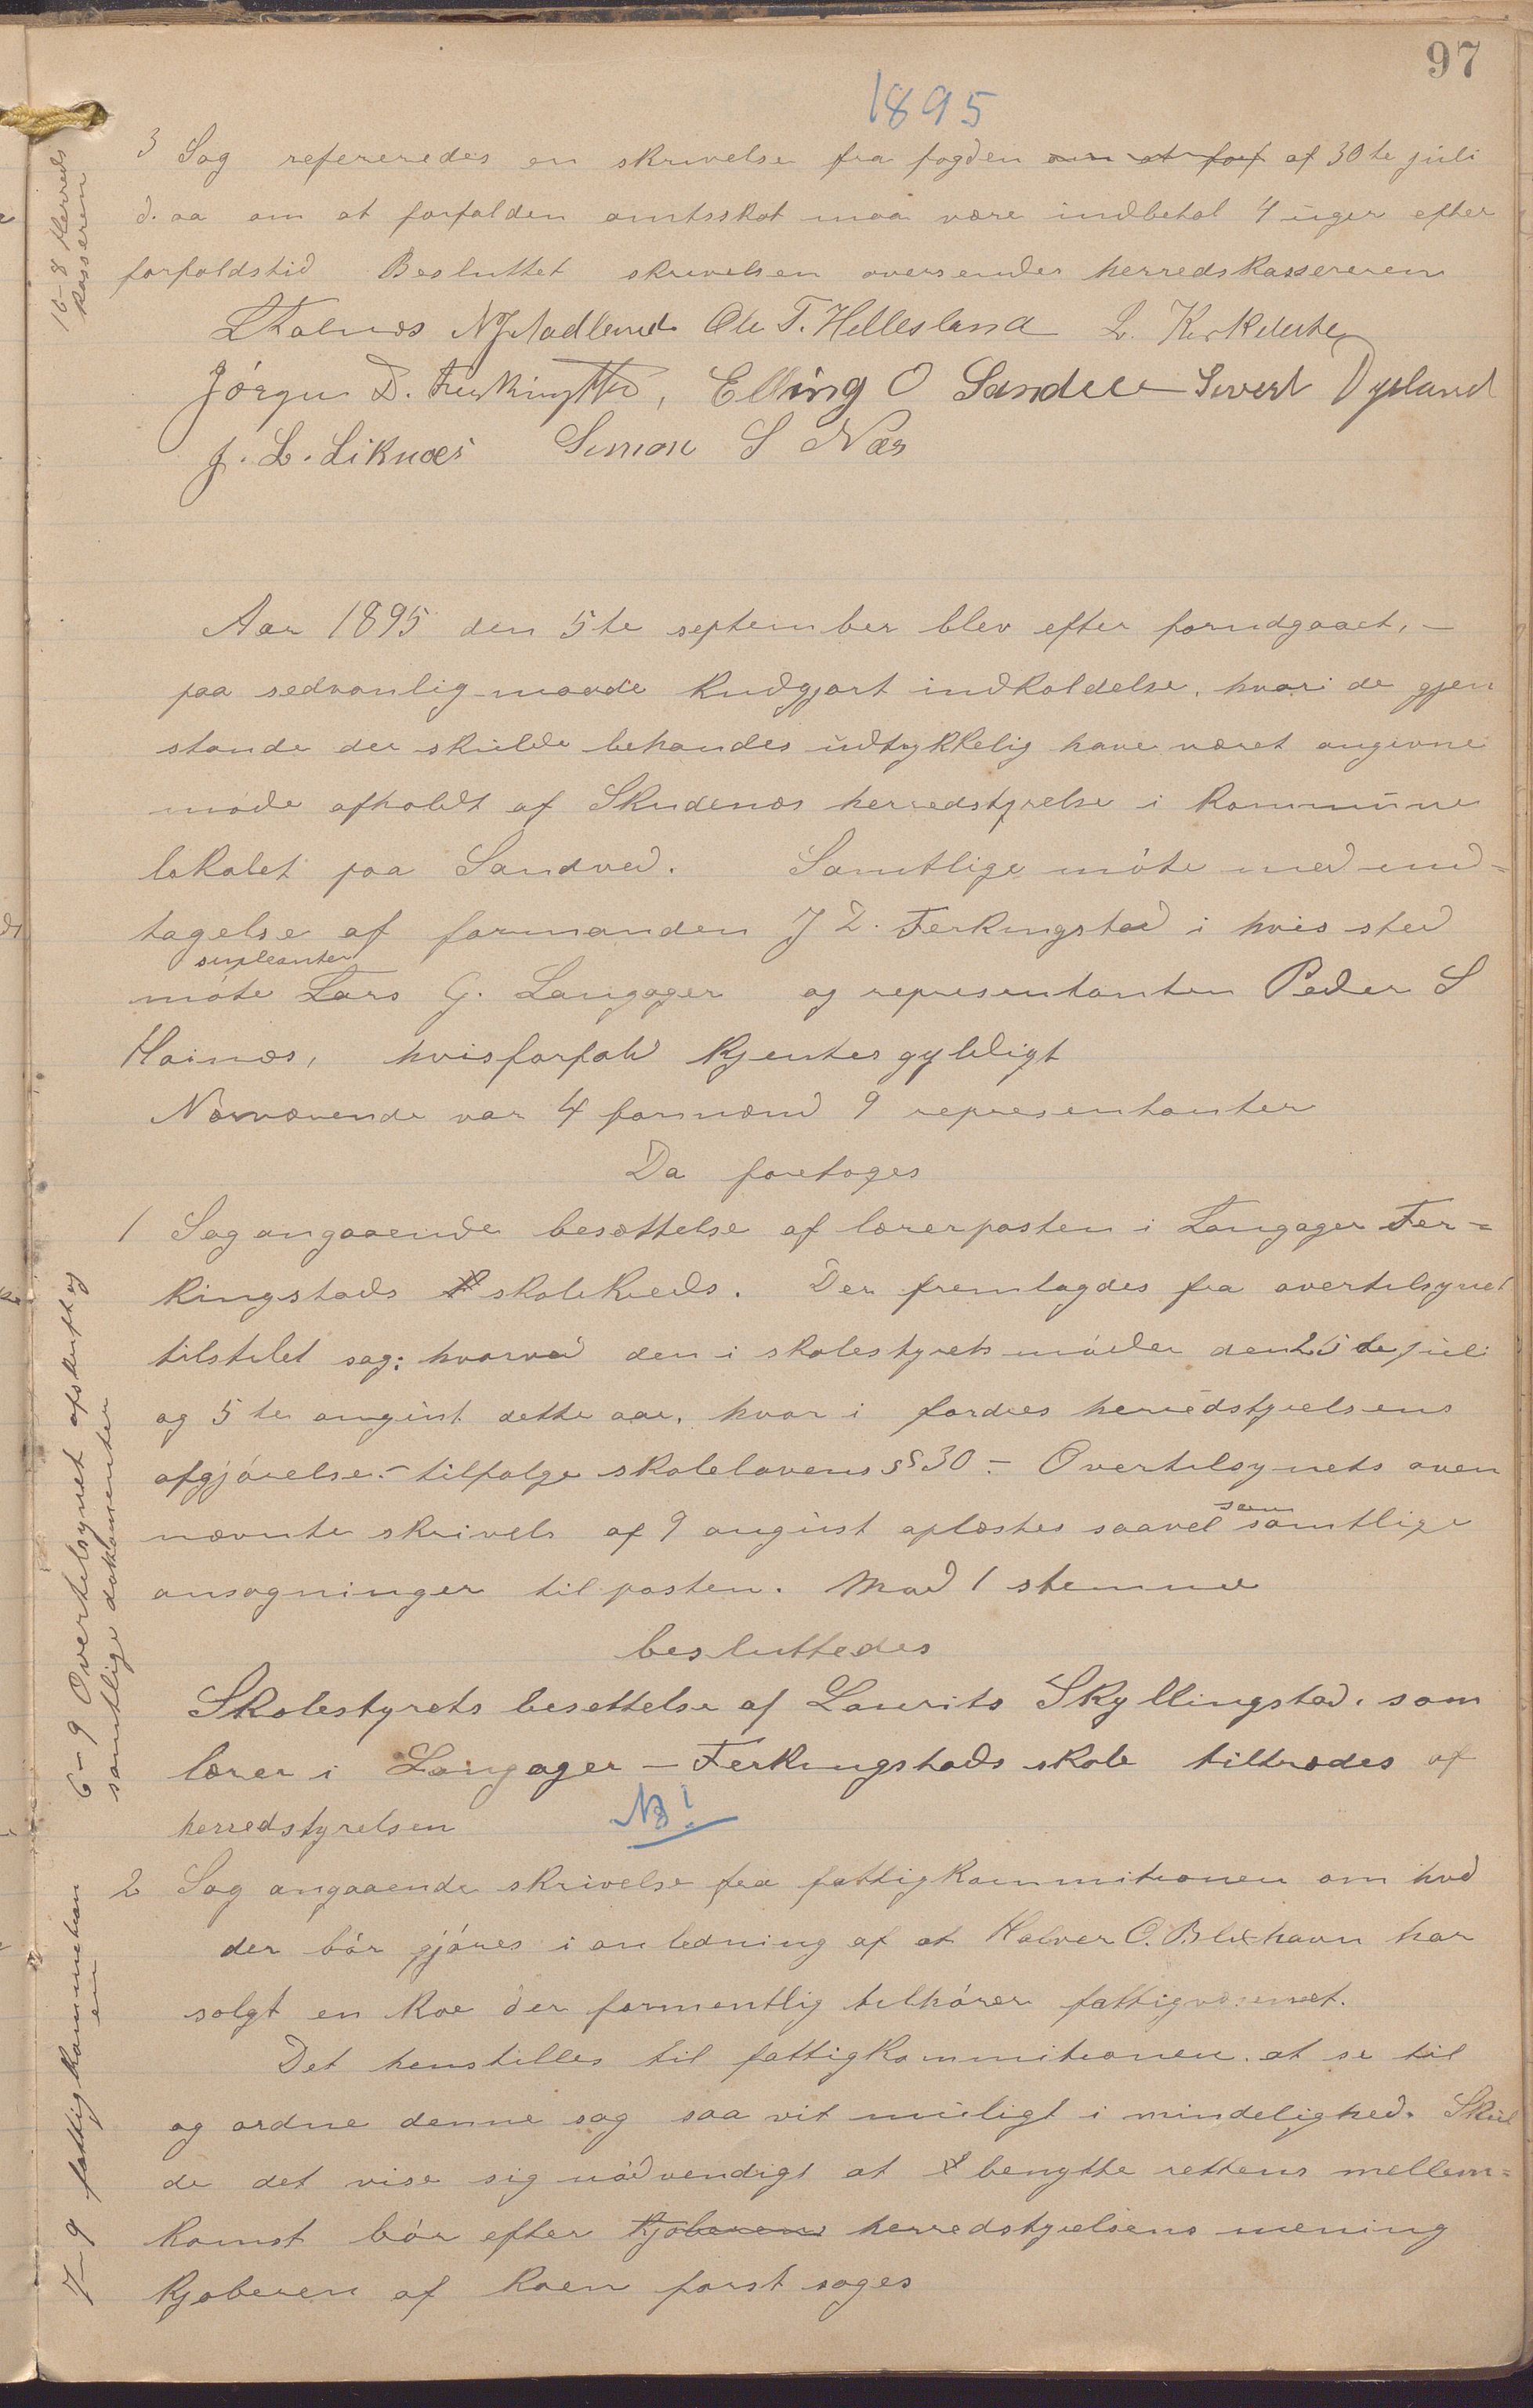 97
1895
3 Sag refereredes en skrivelse fra fogden om at forf af 30te juli
d. aa om at forfalden amtsskat maa være indbetal 4 uger efter
forfaldstid Besluttet skrivelsen oversendes herredskassereren
16-8 Herreds
kasseren
Ole T. Hellesland
Jörgen D. Ferkingstad, Elling O Sandve Sivert Dysland
J. L. Liknæs Simon S Næs
Aar 1895 den 5te september blev efter forudgaaet, –
paa sedvanlig maade kudgjort indkaldelse, hvari de gjen
stande der skulde behandles udtrykkelig have været angivne
møde afholdt af Skudenæs herredstyrelse i kommune
lokalet paa Sandved. Samtlige möte med und-
tagelse af formanden J D. Ferkingstad i hvis sted
supleanten
möte Lars G. Langager og representanten Peder S
Hoinæs, hvis forfald kjentes gyldigt
Nærværende var 4 formænd 9 representanter
Da foretoges
1 Sag angaaende besættelse af lærerposten i Langager Fer=
kingstads skolekreds. Der fremlagdes fra overtilsynet
tilstilet sag: hvorved den i skolestyrets möder den 25de juli
og 5te august dette aar, hvor i fordres herredstyrelsens
afgjörelse.- tilfølge skolelovens §§ 30 - Overtilsynets oven
nævnte skrivels af 9 august oplæstes saavel som samtlige
ansøgninger til posten. Mod 1 stemme
besluttedes
Skolestyrets besettelse af Laurits Skyllingstad, som
lærer i Langager – Ferkingstads skole tiltrædes af
herredstyrelsen
NB!
6-9 Overtilsynet afskrift og
samtlige dokumenter
2 Sag angaaende skrivelse fra fattigkommitionen om hvd
der bör gjöres i anledning af at Halver O. Blikhavn har
solgt en koe der formentlig tilhörer fattigvæsenet.
Det henstilles til fattigkommitionen at se til
og ordne denne sag saa vit muligt i mindelighed. Skul
de det vise sig nödvendigt at benytte rettens mellem=
komst bör efter kjøberens herredstyrelsens mening
kjøberen af koen først søges
7-9 fattigkommition
en